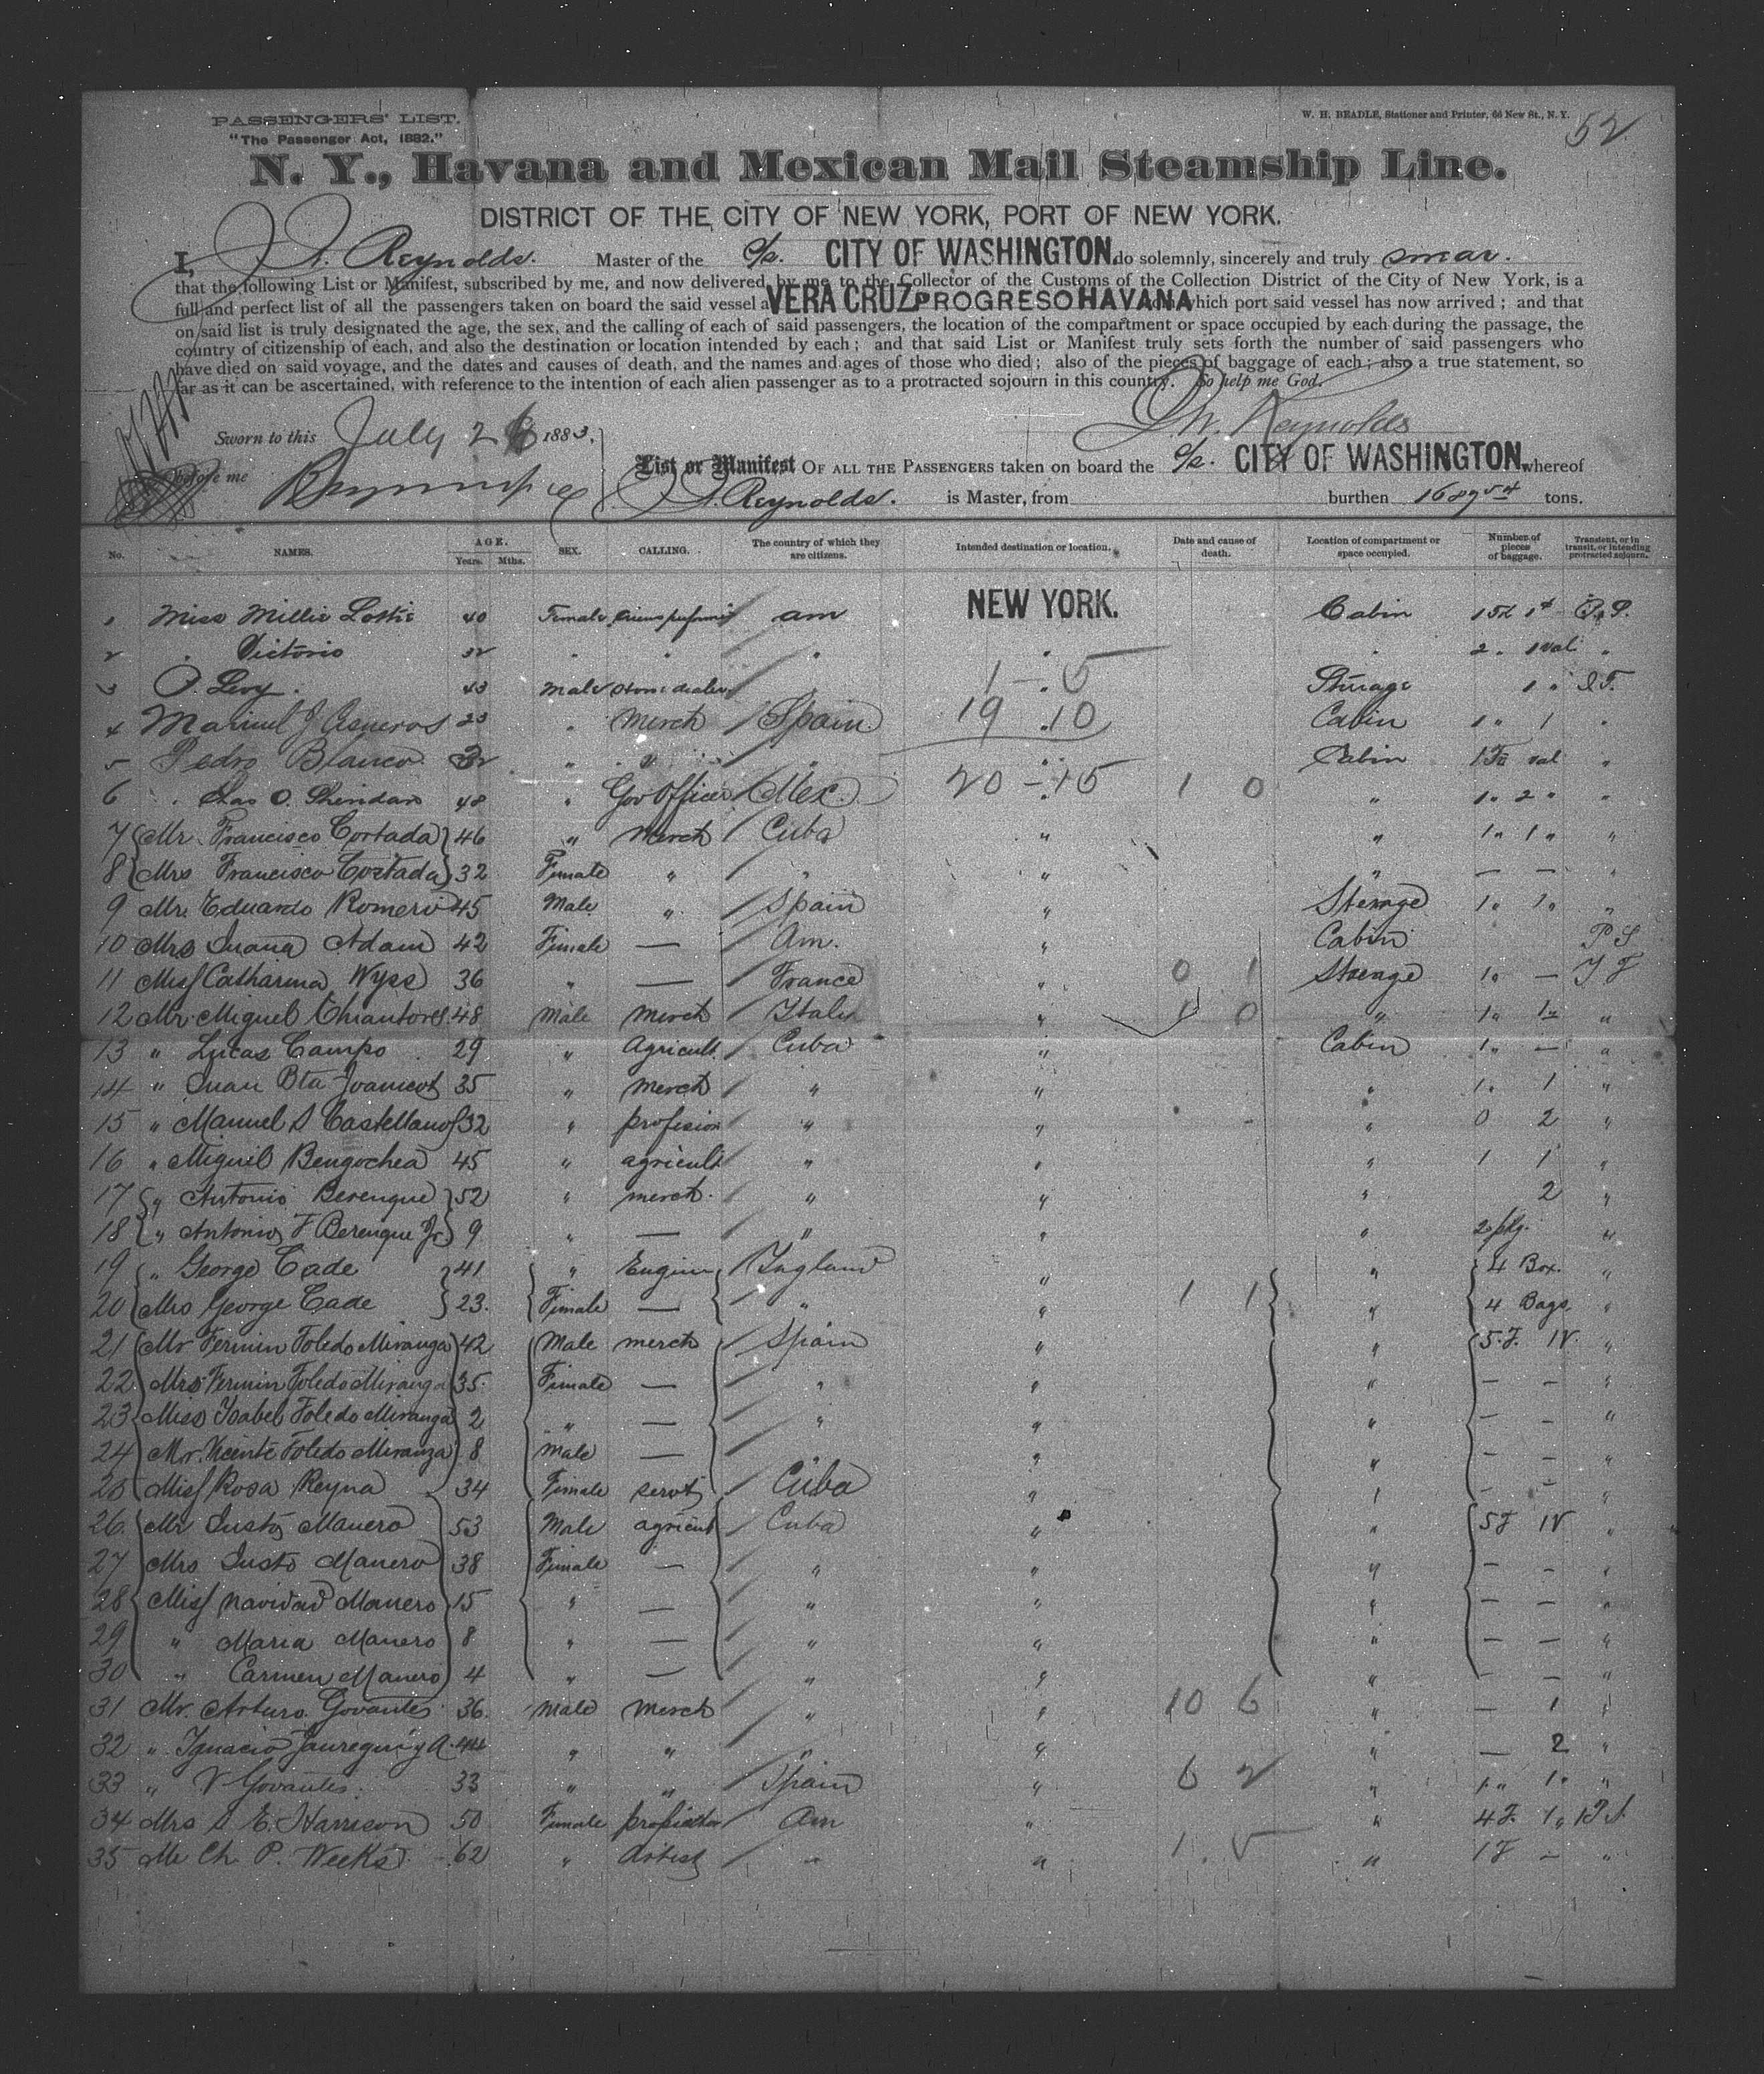 PASSENGERS' LIST.
W. H. BEADLE, Stationer and Printer, 66 New St., N. Y.
52
"The Passenger Act, 1882."
N. Y., Havana and Mexican Mail Steamship Line.
DISTRICT OF THE CITY OF NEW YORK, PORT OF NEW YORK.
I, Reynolds. Master of the CITY OF WASHINGTON do solemnly, sincerely and truly swear.
that the following List or Manifest, subscribed by me, and now delivered by me to the Collector of the Customs of the Collection District of the City of New York, is a
full and perfect list of all the passengers taken on board the said vessel VERA CRUZ PROGRESO HAVANA which port said vessel has now arrived; and that
on said list is truly designated the age, the sex, and the calling of each of said passengers, the location of the compartment or space occupied by each during the passage, the
country of citizenship of each, and also the destination or location intended by each; and that said List or Manifest truly sets forth the number of said passengers who
have died on said voyage, and the dates and causes of death, and the names and ages of those who died; also of the pieces of baggage of each; also a true statement, so
far as it can be ascertained, with reference to the intention of each alien passenger as to a protracted sojourn in this country. So help me God.
Reynolds
Sworn to this July 2 1883,
before me
List or Manifest OF ALL THE PASSENGERS taken on board the CITY OF WASHINGTON whereof
Reynolds. is Master, from burthen tons.
No. NAMES. AGE. Years. Mths. SEX. CALLING. The country of which they are citizens. Intended destination or location. Date and cause of death. Location of compartment or space occupied. Number of pieces of baggage. Transient, or in transit, or intending protracted sojourn.
1 Miss Millie Lottie 40 Female am NEW YORK. Cabin
2 " Victorio 32 " " " " " 2 " 1 val "
3 Levy. 43 Male " " Sturage 1 "
1 - 5
4 Manuel J Cisneros 23 " Merch Spain " Cabin 1 " 1 "
19 10
5 Pedro Blanco " " " " Cabin val "
6 " Chas O. Sheridan 48 " Gov Officer Mex. " " 1 " 2 " "
20 - 15 1 0
7 Mr. Francisco Cortada 46 " Merch Cuba " " 1 " 1 " "
8 Mrs Francisco Cortada 32 Female " " " " — —
9 Mr. Eduardo Romero 45 Male " Spain " Sterage 1 " 1 " "
10 Mrs Juana Adam 42 Female — Am. " Cabin P S
11 Miss Catharina Wyss 36 " — France " 0 1 Sterage 1 " —
12 Mr. Miguel Chiantores 48 Male Merch Italy " 1 0 " 1 " 1 " "
13 " Lucas Campo 29 " Agricult. Cuba " Cabin 1 " — "
14 " Juan Bta Joanicot 35 " Merch " " " 1 " 1 "
15 " Manuel S Castellanos 32 " profesion " " " 0 2 "
16 " Miguel Bengochea 45 " agricult " " " 1 1 "
17 " Antonio Berengue 52 " merch. " " " 2 "
18 " Antonio F Berengue Jr. 9 " — " " " 2 pkg. "
19 " George Cade 41 " Engin England " " 4 Box. "
20 Mrs George Cade 23. Female — " " 1 1 " 4 Bags "
21 Mr Fermin Toledo Miranga 42 Male merch Spain " " 5. F. 1 V. "
22 Mrs Fermin Toledo Miranga 35. Female — " " " — — "
23 Miss Isabel Toledo Miranga 2 " — " " " — — "
24 Mr. Vicente Toledo Miranza 8 Male — " " — — "
25 Miss Rosa Reyna 34 Female servt Cuba " " — — "
26. Mr Justo Manero 53 Male agricult Cuba " " 5 F 1 V "
27 Mrs Justo Manero 38 Female — " " " — — "
28 Miss Navidad Manero 15 " — " " " — — "
29 " Maria Manero 8 " — " " " — — "
30 " Carmen Manero 4 " — " " " — — "
31 Mr. Arturo Govantes 36. Male Merch " " 10 6 " — 1 "
32 " Ignacio Jauregui y A. 44 " " " " " — 2 "
33 " V Govantes. 33 " " Spain " 6 2 " 1 " 1 " "
34 Mrs S. E. Harrison 50 Female Am " " 4 F. 1 "
35 Mr Ch. P. Weeks 62 " Artist " " 1. 5 " 1 F — "